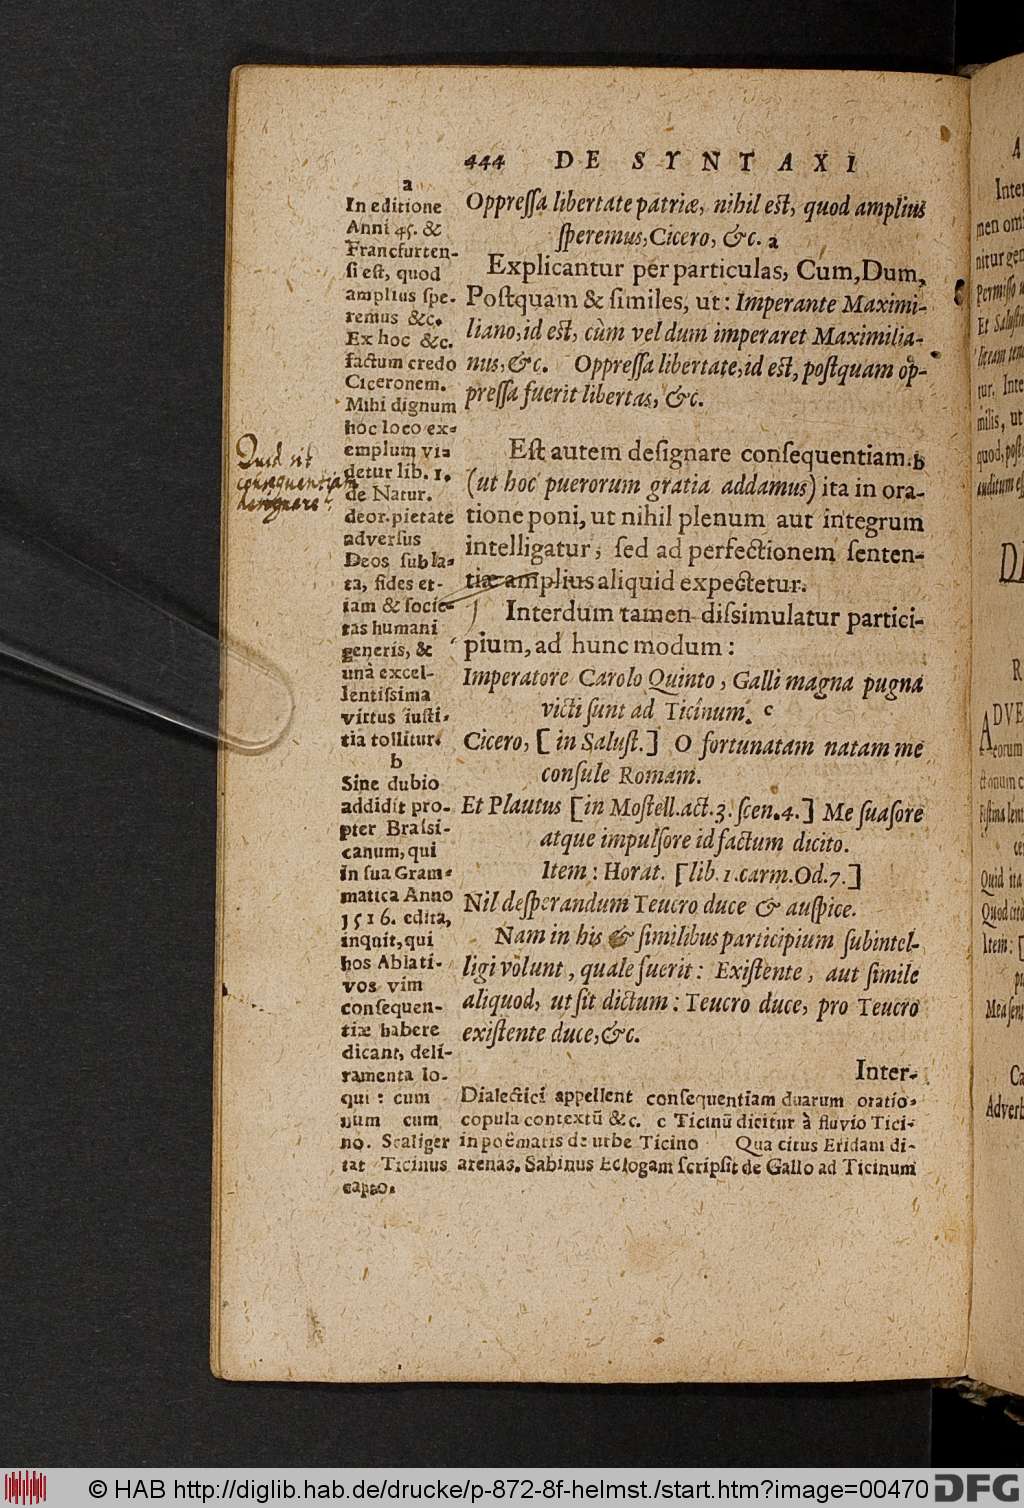 444 DE SYNTAXI
Oppressa libertate patriæ, nihil est, quod amplius
speremus, Cicero, &c. a
Explicantur per particulas, Cum, Dum,
Postquam & similes, ut: Imperante Maximi-
liano, id est, cùm vel dum imperaret Maximilia-
nus, &c. Oppressa libertate, id est, postquam op-
pressa fuerit libertas, &c.
Est autem designare consequentiam. b
(ut hoc puerorum gratia addamus) ita in ora-
tione poni, ut nihil plenum aut integrum
intelligatur, sed ad perfectionem senten-
tiæ amplius aliquid expectetur.
Interdum tamen dissimulatur partici-
pium, ad hunc modum:
Imperatore Carolo Quinto, Galli magna pugna
victi sunt ad Ticinum. c
Cicero, [in Salust.] O fortunatam natam me
consule Romam.
Et Plautus [in Mostell. act. 3. scen. 4.] Me suasore
atque impulsore id factum dicito.
Item: Horat. [lib. 1. carm. Od. 7.]
Nil desperandum Teucro duce & auspice.
Nam in his & similibus participium subintel-
ligi volunt, quale fuerit: Existente, aut simile
aliquod, ut sit dictum: Teucro duce, pro Teucro
existente duce, &c.
Inter-
a
In editione
Anni 45. &
Francfurten-
si est, quod
amplius spe-
remus &c.
Ex hoc &c.
factum credo
Ciceronem.
Mihi dignum
hoc loco ex-
emplum vi-
detur lib. 1.
de Natur.
deor. pietate
adversus
Deos subla-
ta, fides et-
iam & socie-
tas humani
generis, &
unà excel-
lentissima
virtus iusti-
tia tollitur.
b
Sine dubio
addidit pro-
pter Brassi-
canum, qui
in sua Gram-
matica Anno
1516. edita,
inquit, qui
hos Ablati-
vos vim
consequen-
tiæ habere
dicant, deli-
ramenta lo-
qui: cum Dialectici appellent consequentiam duarum oratio-
num cum copula contextū &c. c Ticinū dicitur à fluvio Tici-
no. Scaliger in poëmatis de urbe Ticino Qua citus Eridani di-
tat Ticinus arenas. Sabinus Eclogam scripsit de Gallo ad Ticinum
capto.
Quid sit
consequentiam
designare?
A
Inter
men om
nitur gen
Permisso
Et Salusti
tur. Inte
milis, ut
quod, post
auditum ess
R
ADVE
Quid ita
Quod cito
Item: [
Mea sen
Ca
Adverb
© HAB http://diglib.hab.de/drucke/p-872-8f-helmst./start.htm?image=00470 DFG